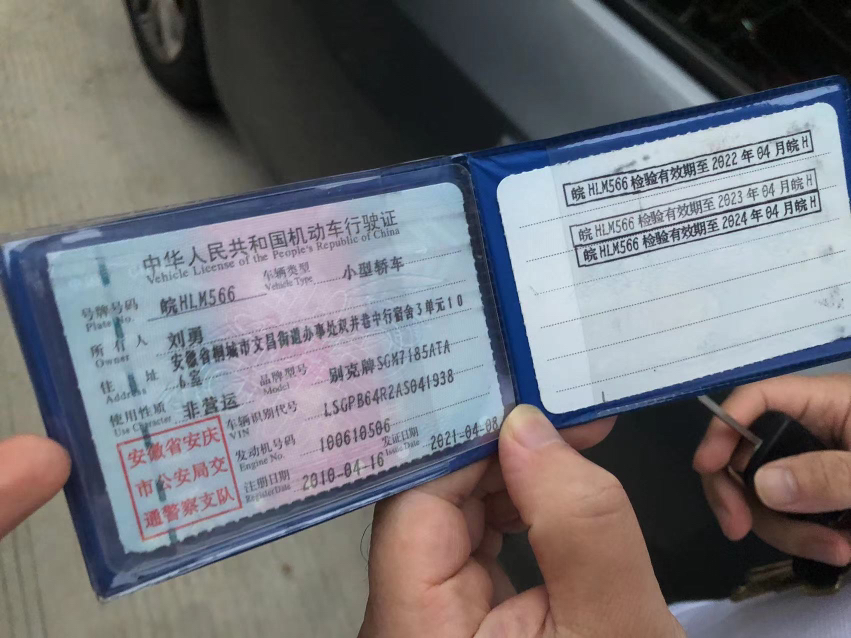 中华人民共和国机动车行驶证
Vehicle License of the People's Republic of China
号牌号码 皖HLM566 车辆类型 小型轿车
Plate No. Vehicle Type
所有人 刘勇
Owner
住址 安徽省桐城市文昌街道办事处双井巷中行宿舍3单元10
Address 6室
使用性质 非营运 品牌型号 别克牌SGM7185ATA
Use Character Model
车辆识别代号 LSGPB64R2AS041938
VIN
发动机号码 100610506
Engine No.
注册日期 2010-04-16 发证日期 2021-04-08
Register Date Issue Date
安徽省安庆
市公安局交
通警察支队
皖HLM566 检验有效期至 2022 年 04 月皖H
皖HLM566 检验有效期至 2023 年 04 月皖H
皖HLM566 检验有效期至 2024 年 04 月皖H